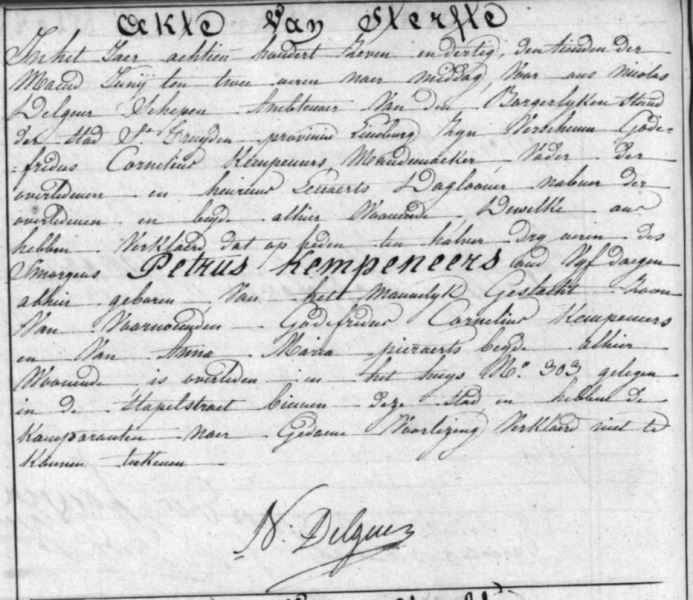 Ackte Van Sterfte
In het Jaer achtien hondert Zeven en dertig, den tienden der
Maend Junij ten twee uren naer middag, Voor ons Nicolas
Delgeur Schepen Ambtenaer Van den Borgerlyken Stand
der Stad St. Truyden provincie Limburg Zyn Verschenen Gode-
-fridus Cornelius Kempeneers Mandemaeker, Vader der
overledenen en henricus Daglooner nabuer der
overledenen en beyde alhier Woonende, Dewelke ons
hebben Verklaerd dat op heden ten halver dry uren des
Smorgens Petrus Kempeneers oud Vyf daegen
alhier geboren Van het Mannelyk Geslacht Zoon
Van Voornoemden Godefridus Cornelius Kempeneers
en Van Anna Maria pieraerts beyde alhier
Woonende is overleden in het huys No. 303 gelegen
in de Stapelstraet binnen deze Stad en hebben de
Komparanten naer Gedaene Voorlezing Verklaerd niet te
konnen teekenen
N. Delgeur